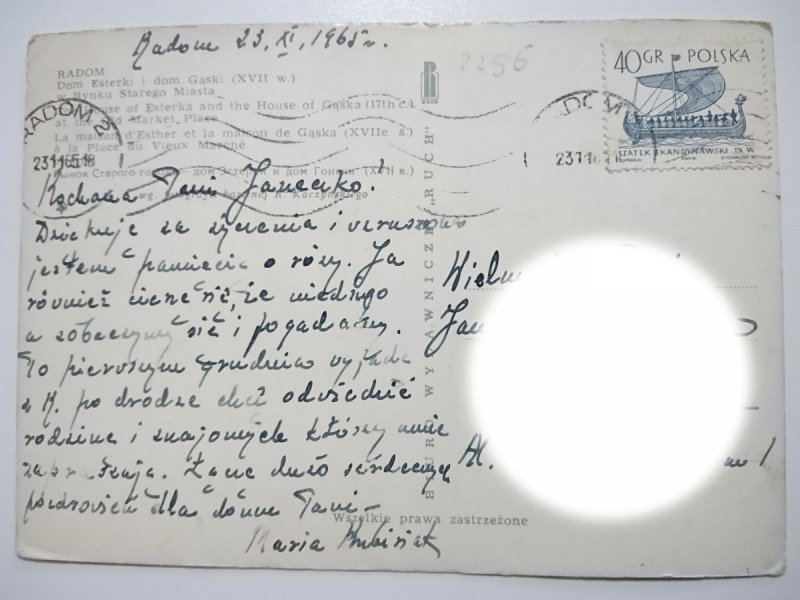 Radom 23, XI, 1965r.
2256
RADOM
Dom Esterki i dom Gąski (XVII w.)
w Rynku Starego Miasta
House of Esterka and the House of Gąska (17th c.)
at the Old Market Place
La maison d'Esther et la maison de Gąska (XVIIe s.)
à la Place du Vieux Marché.
Рынок Старого дом Эстерки и дом Гонски (XVII в.)
wg. fotografii barwnej R. Kaczyńskiego
RADOM 2
231165-18
BIURO WYDAWNICZE „RUCH"
RUCH
40GR POLSKA
STATEK SKANDYNAWSKI IX W
ADOM
Kochana Pani Janeczko!
Dziękuję za życzenia i wzruszona
jestem pamięcią o róży. Ja
również cieszę się, że niedługo
zobaczymy się i pogadamy.
Po pierwszym grudnia wyjadę
z R. po drodze chcę odwiedzić
rodzinę i znajomych którzy mnie
zapraszają. Łączę dużo serdecznych
pozdrowień dla Pani –
Maria
Wszelkie prawa zastrzeżone
Al.
1